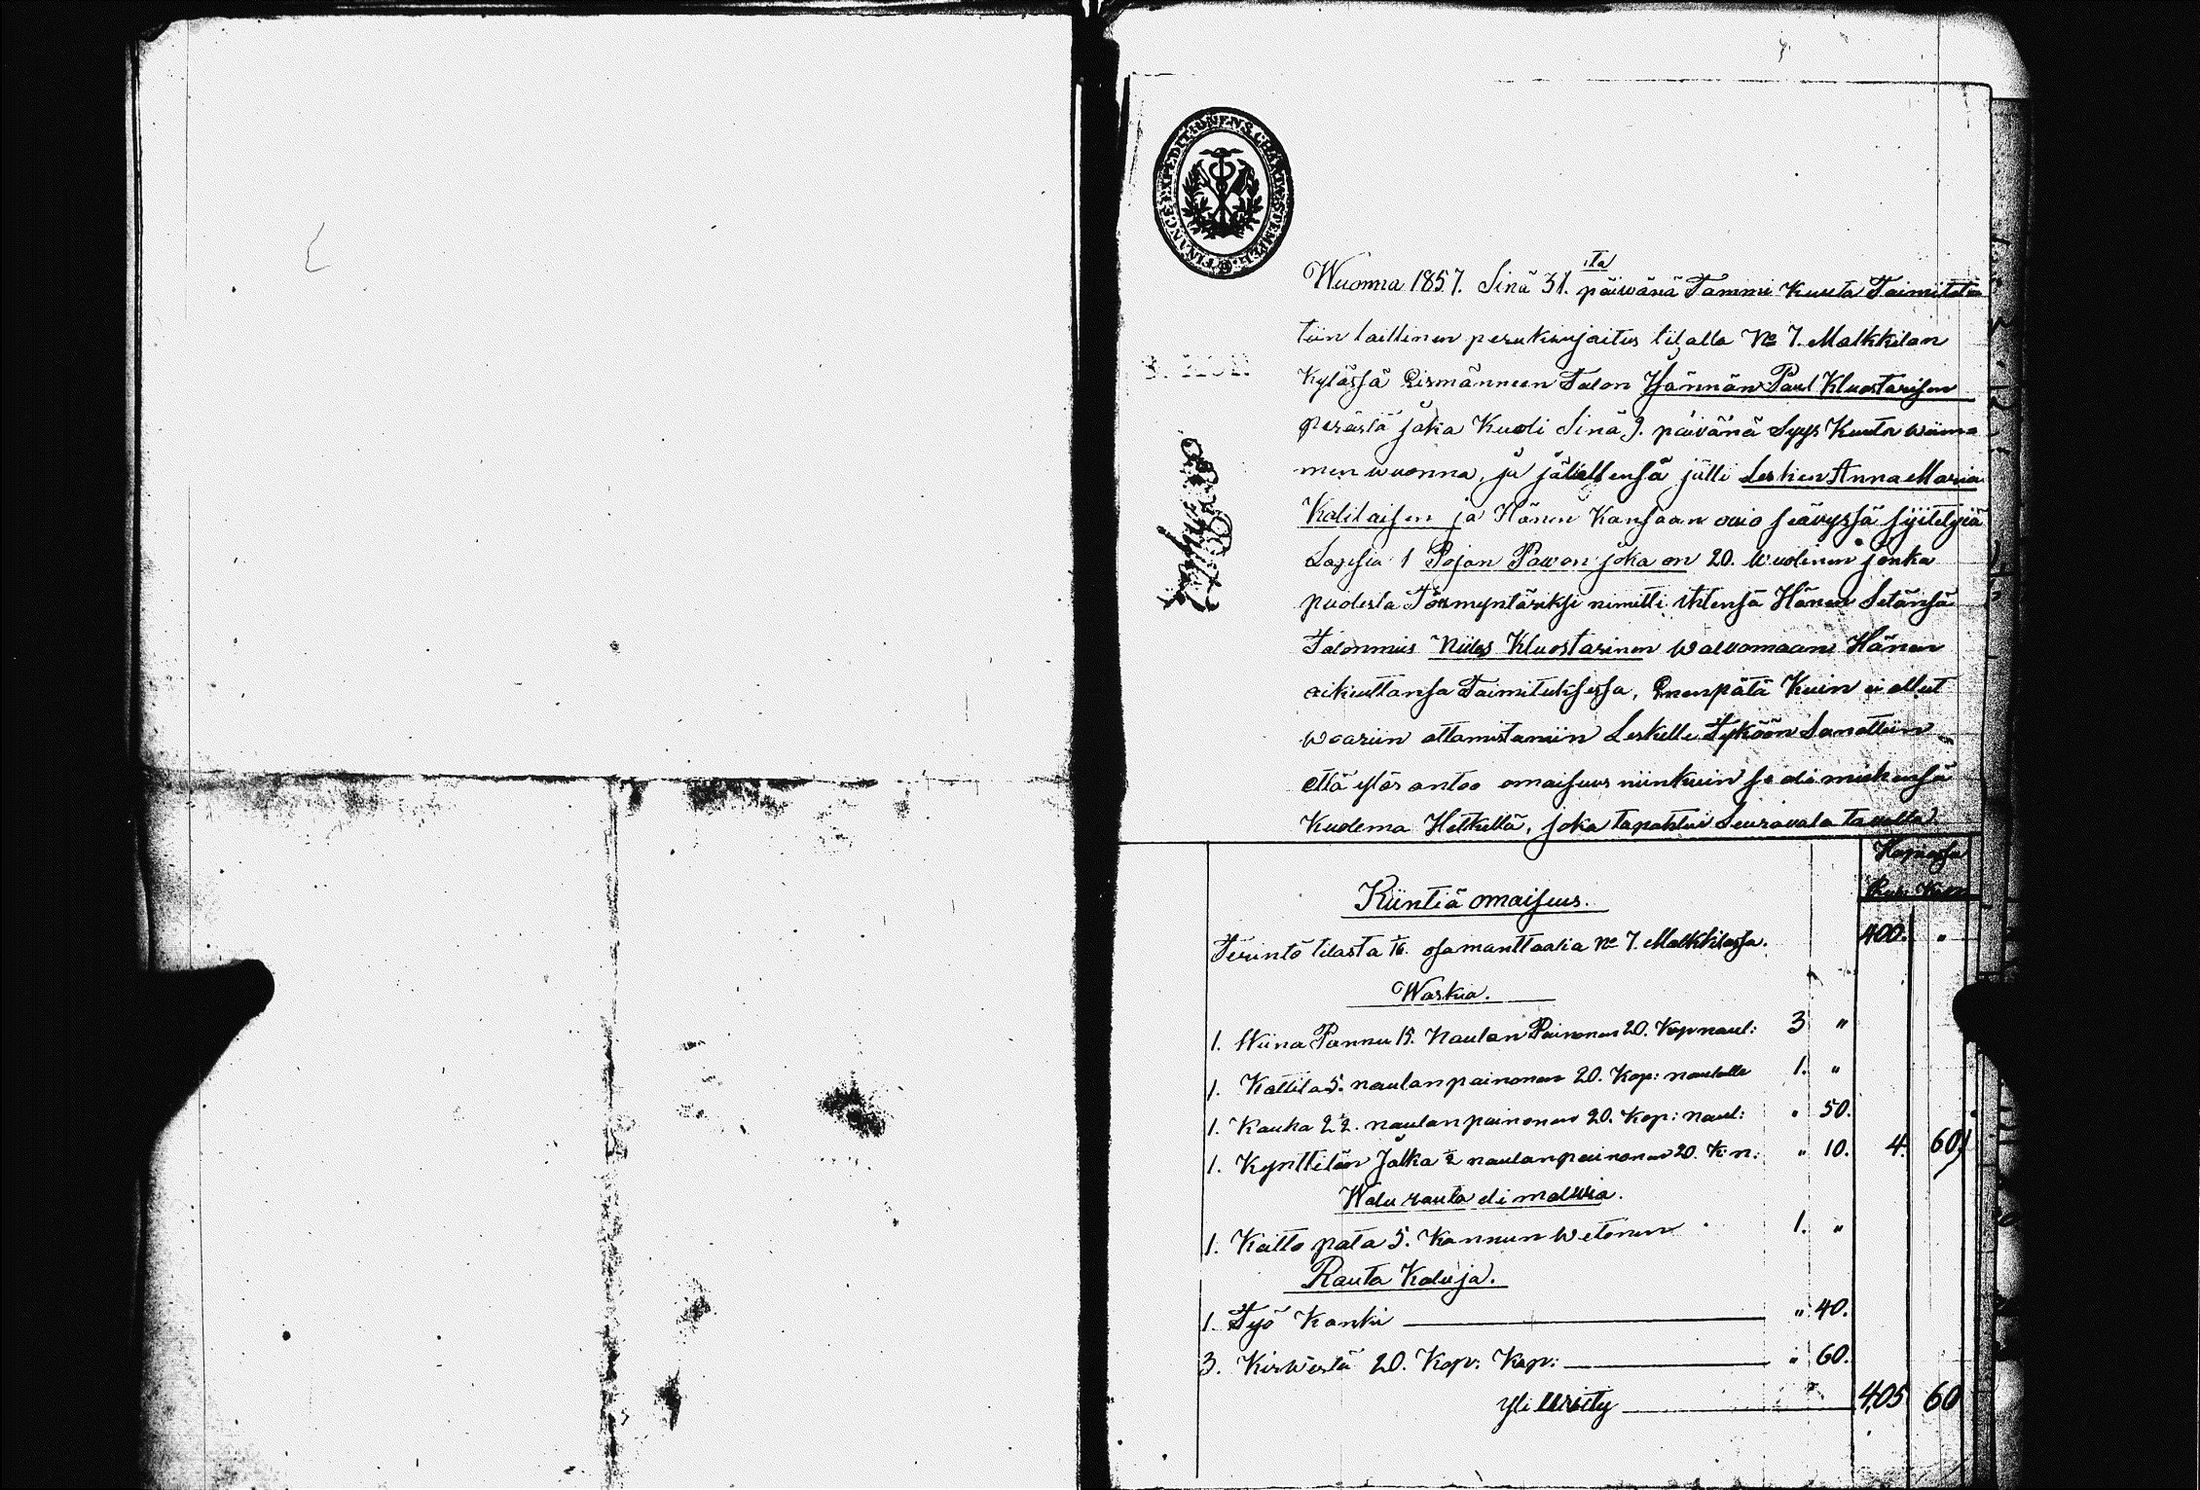 FINANCE EXPEDITIONENS CHARTÆ STEMPEL
Wuonna 1857. Sinä 31.ttä päiwänä Tammi Kuuta Toimitet
tiin laillinen perukirjoitus tilalla No 7. Malkkilan
Kylässä Rismänneen Talon Isännän Paul Kluostarisen
perästä joka Kuoli Sinä 9. päivänä Syys Kuuta wiime
nen wuonna, ja jälkellensä jätti Lesken Anna Maria
Kalilaisen ja Hänen Kansaan awio säätyssä syitetyiä
Lapsia 1 Pojan Pawon joka on 20. Wuotinen jonka
puolesta Förmyntäriksi nimitti ittensä Hänen Setänsä
Talonmies Niiles Kluostarinen walwomaan Hänen
oikeuttansa Toimituksessa, Enenpätä Kuin ei ollut
waariin ottamistamiin Leskelle Tyköön Sanottiin
että ylös antaa omaisuus niinkuin se oli miehensä
Kuolema Hetkellä, joka tapahtui Seurawala tawalla.
Hopeassa
Rup: Kop:
Kiintiä omaisuus.
Perintö tilasta 1/16. osa manttaalia No 7. Malkkilassa. 400. "
Waskia.
1. Wiina Pannu 15. Naulan Painonen 20. Kop naul: 3 "
1. Kattila 5. naulan painonen 20. Kop: naulalle 1. "
1. Kauha 2 1/2. naulan painonen 20. Kop: naul: " 50.
1. Kynttilän Jalka 1/2 naulan painonen 20. K: n: " 10. 4. 60
Walu rauta eli malwia.
1. Keitto pata 5. Kannun wetonen 1. "
Rauta Kaluja.
1. Työ Kanki " 40.
3. Kirwestä 20. Kop: Kap: " 60.
Yli wiety 405 60